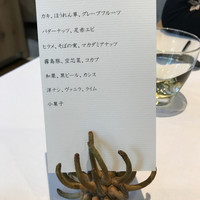 カキ、ほうれん草、グレープフルーツ
バターナッツ、足赤エビ
ヒラメ、そばの実、マカダミアナッツ
霧島豚、黄芯菜、コカブ
和栗、黒ビール、カシス
洋ナシ、ヴァニラ、ライム
小菓子